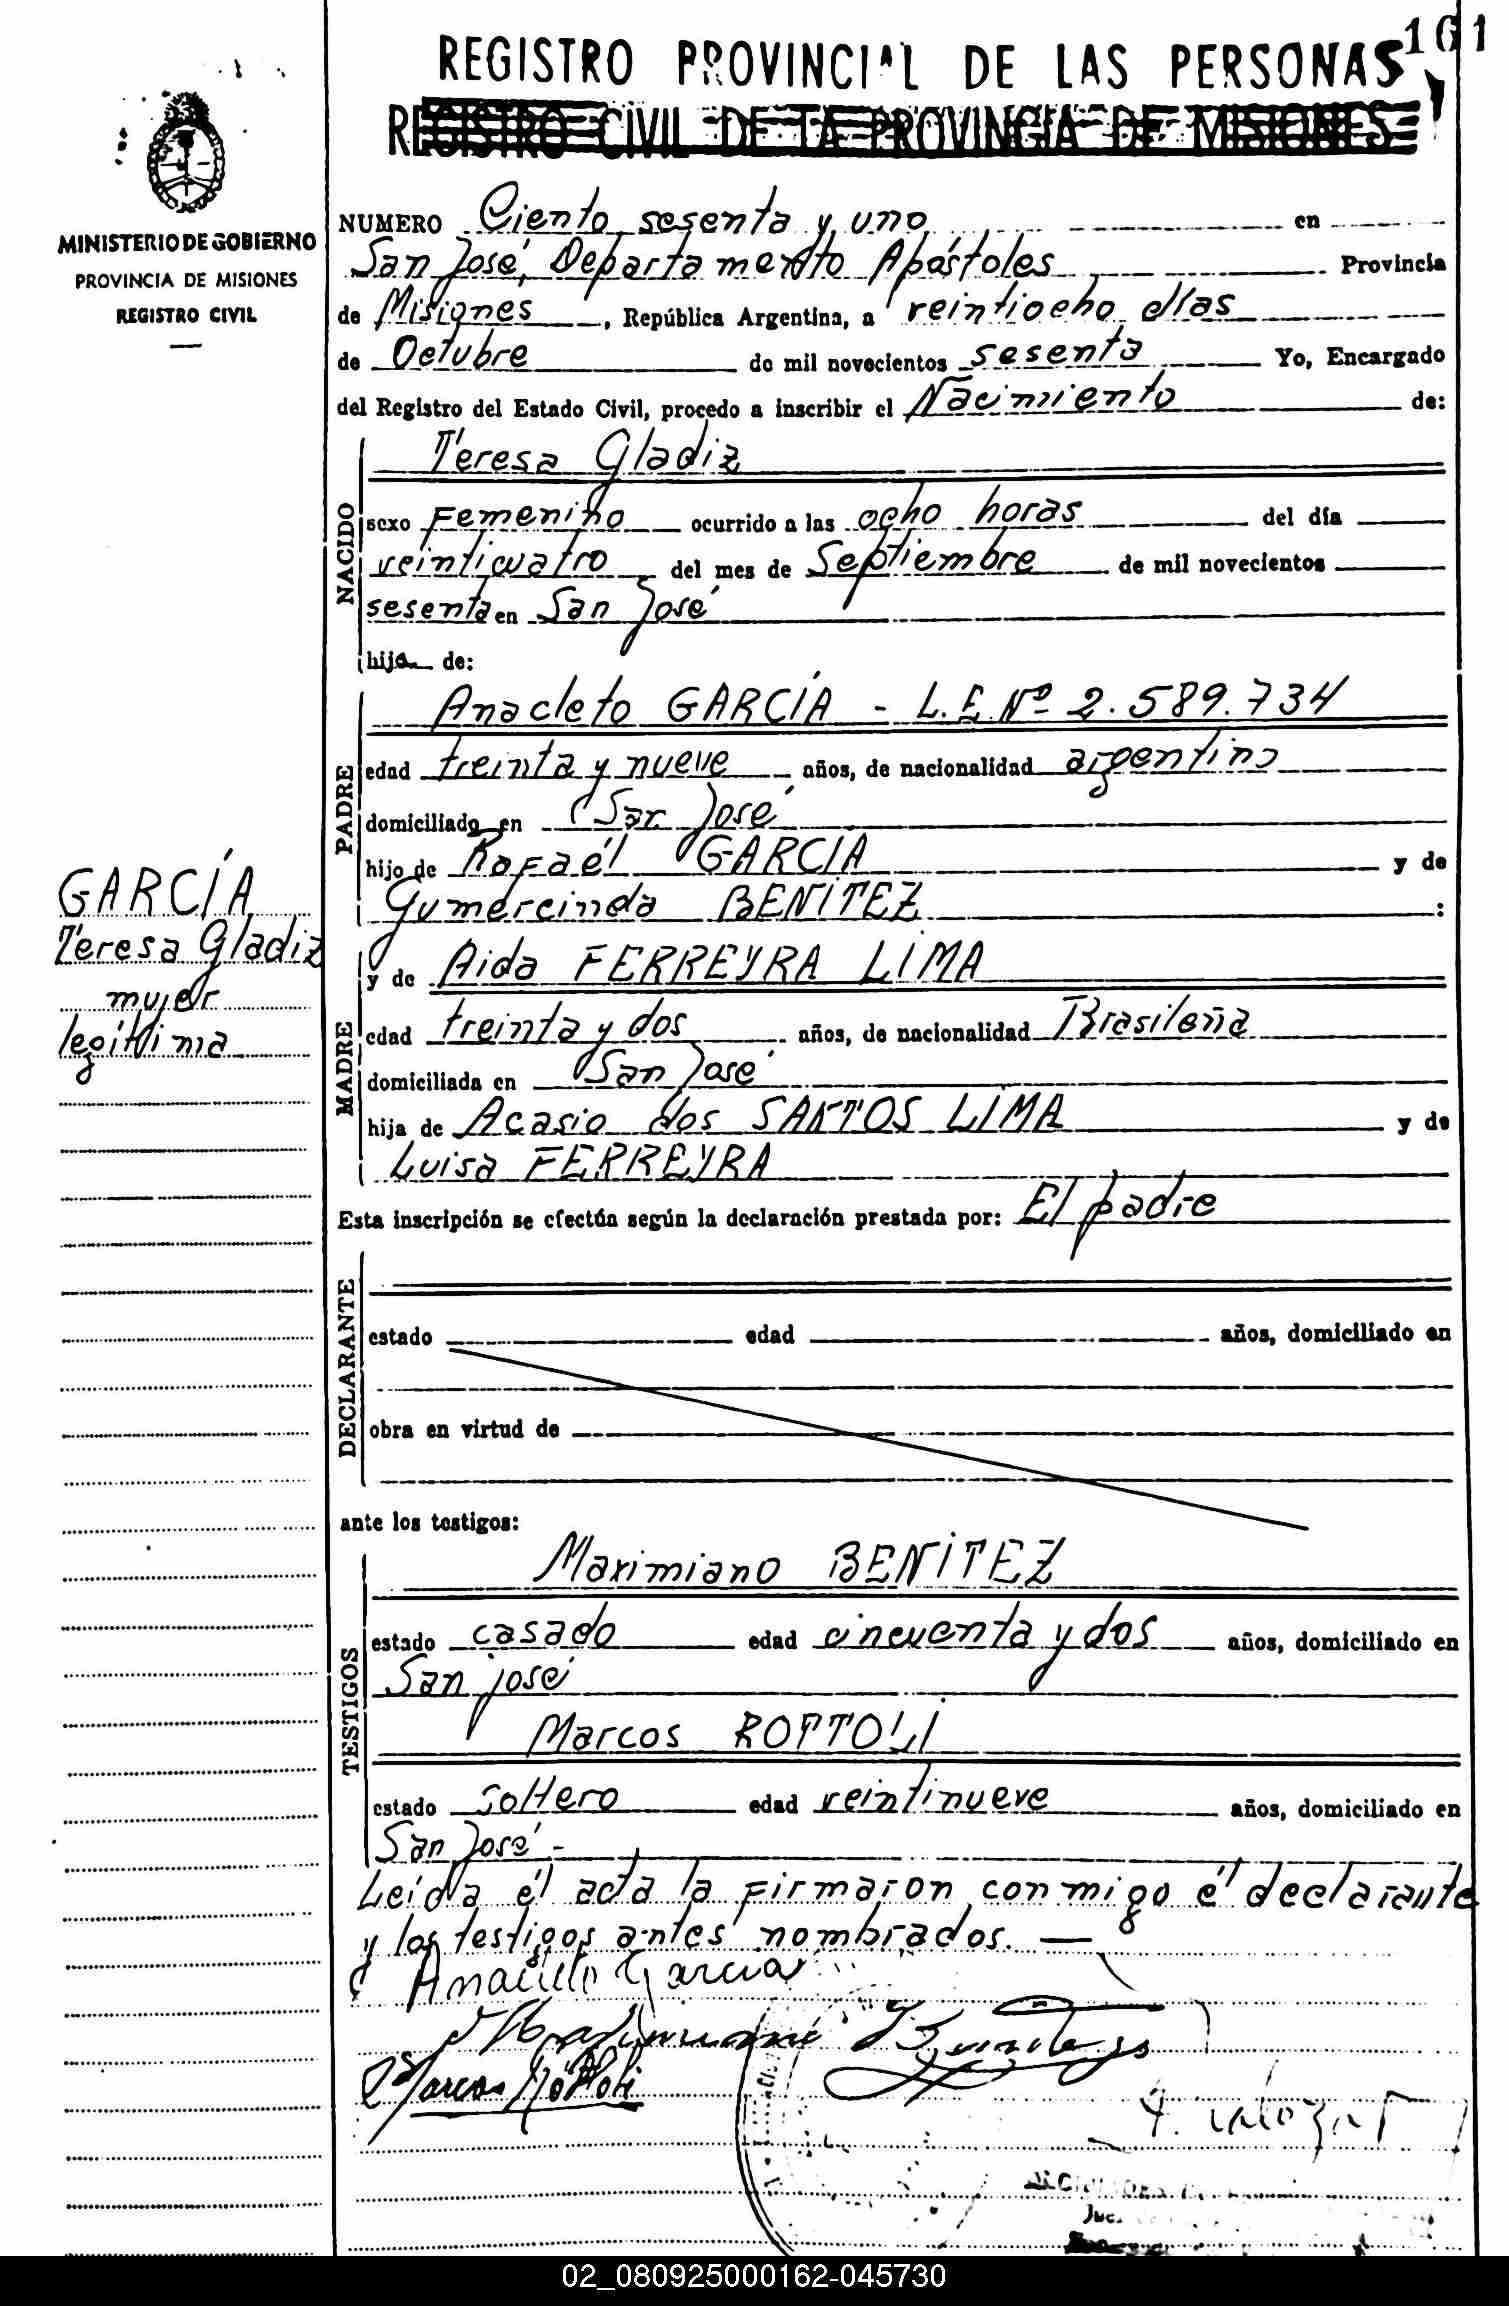 161
REGISTRO PROVINCIAL DE LAS PERSONAS
REGISTRO CIVIL DE LA PROVINCIA DE MISIONES
MINISTERIO DE GOBIERNO
PROVINCIA DE MISIONES
REGISTRO CIVIL
NUMERO Ciento sesenta y uno en
San José, Departamento Apóstoles Provincia
de Misiones, República Argentina, a veintiocho días
de Octubre de mil novecientos sesenta Yo, Encargado
del Registro del Estado Civil, procedo a inscribir el Nacimiento de:
NACIDO
Teresa Gladiz
sexo Femenino ocurrido a las ocho horas del día
veinticuatro del mes de Septiembre de mil novecientos
sesenta en San José
hija de:
PADRE
Anacleto GARCÍA - L.E. Nº 2.589.734
edad treinta y nueve años, de nacionalidad argentino
domiciliado en San José
hijo de Rafaél GARCIA y de
Gumercinda BENITEZ :
GARCÍA
Teresa Gladiz
mujer
legítima
MADRE
y de Aida FERREYRA LIMA
edad treinta y dos años, de nacionalidad Brasileña
domiciliada en San José
hija de Acasio dos SANTOS LIMA y de
Luisa FERREYRA
Esta inscripción se efectúa según la declaración prestada por: El padre
DECLARANTE
estado edad años, domiciliado en
obra en virtud de
ante los testigos:
TESTIGOS
Maximiano BENITEZ
estado casado edad cincuenta y dos años, domiciliado en
San José
Marcos ROTTOLI
estado soltero edad veintinueve años, domiciliado en
San José -
Leída él acta la firmaron conmigo él declarante
y los testigos antes nombrados. —
Anacleto Garcia
Marcos Róttoli
02_080925000162-045730